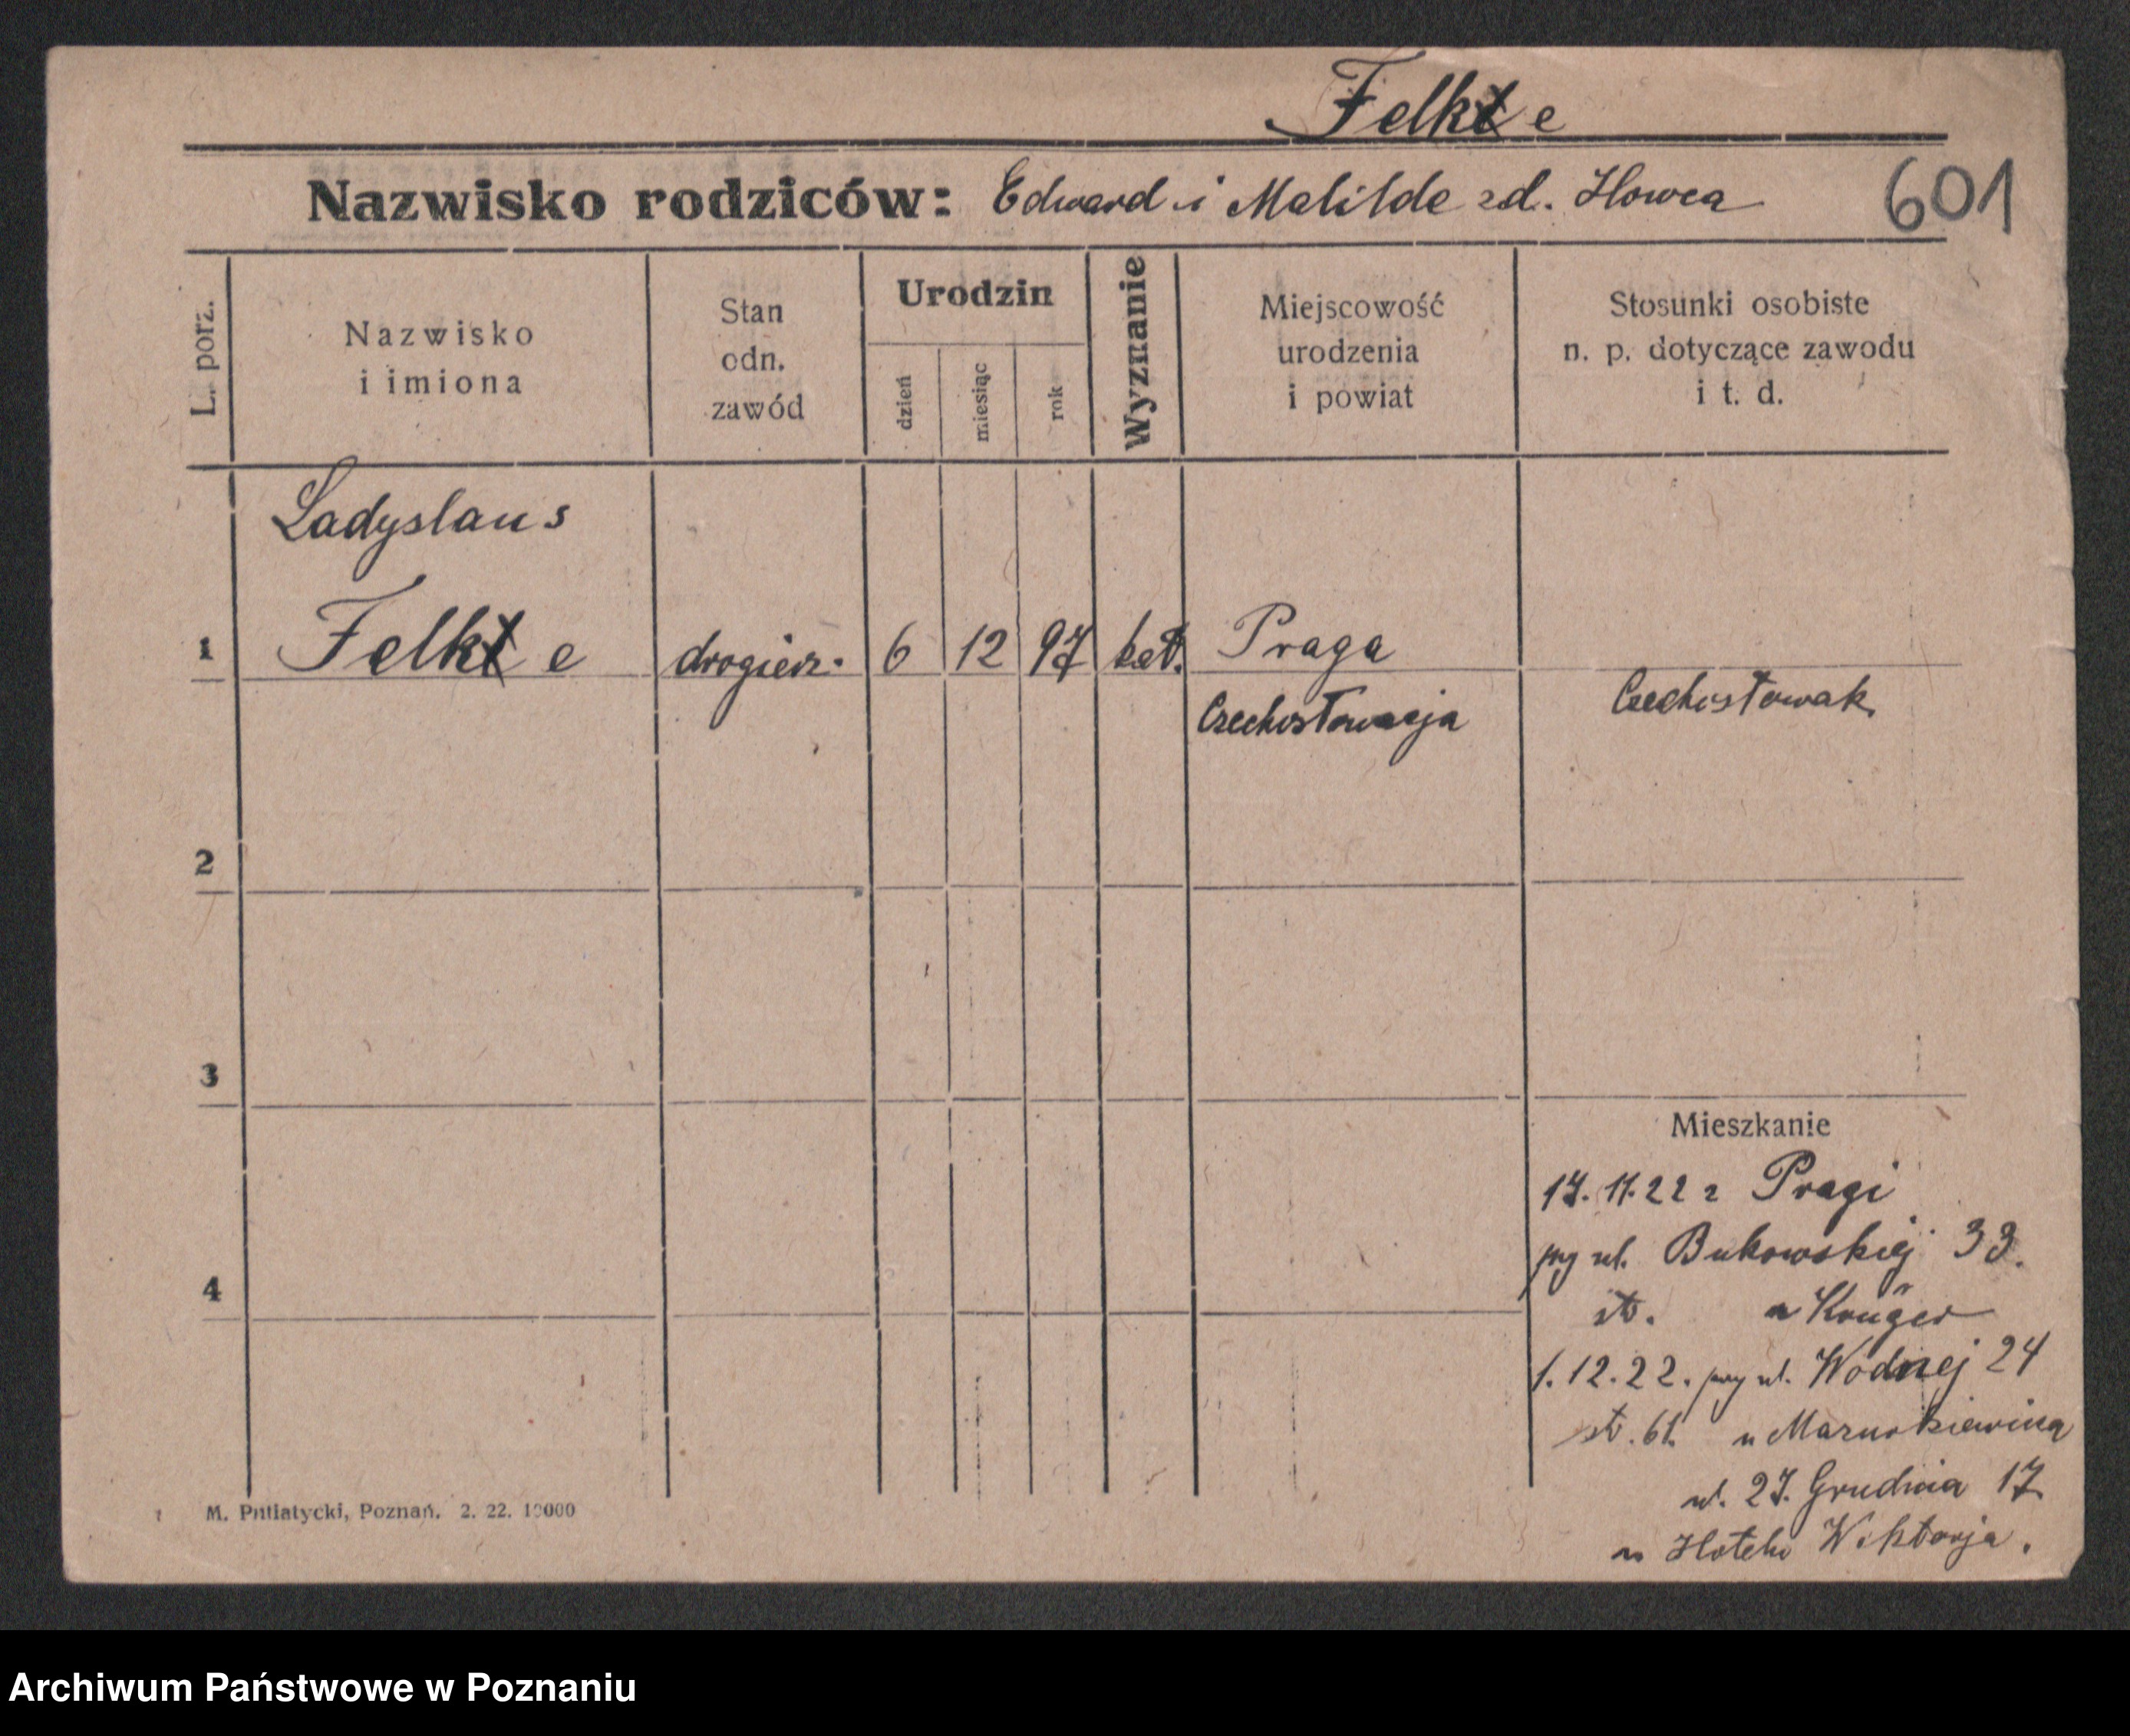 Felke
Nazwisko rodziców: Edward i Matilde zd. Howca
601
L. porz.
Nazwisko
i imiona
Stan
odn.
zawód
Urodzin
dzień
miesiąc
rok
Wyznanie
Miejscowość
urodzenia
i powiat
Stosunki osobiste
n. p. dotyczące zawodu
i t. d.
Ladyslaus
1 Felke drogierz. 6 12 97 kat. Praga
Czechosłowacja Czechosłowak
2
3
4
Mieszkanie
17. 11. 22 z Pragi
przy ul. Bukowskiej 33.
str. u Krüger
1. 12. 22. przy ul. Wodnej 24
str. 61. u Mazurkiewicza
ul. 27. Grudnia 17
w Hotelu Wiktorja.
M. Putiatycki, Poznań. 2. 22. 10000
Archiwum Państwowe w Poznaniu